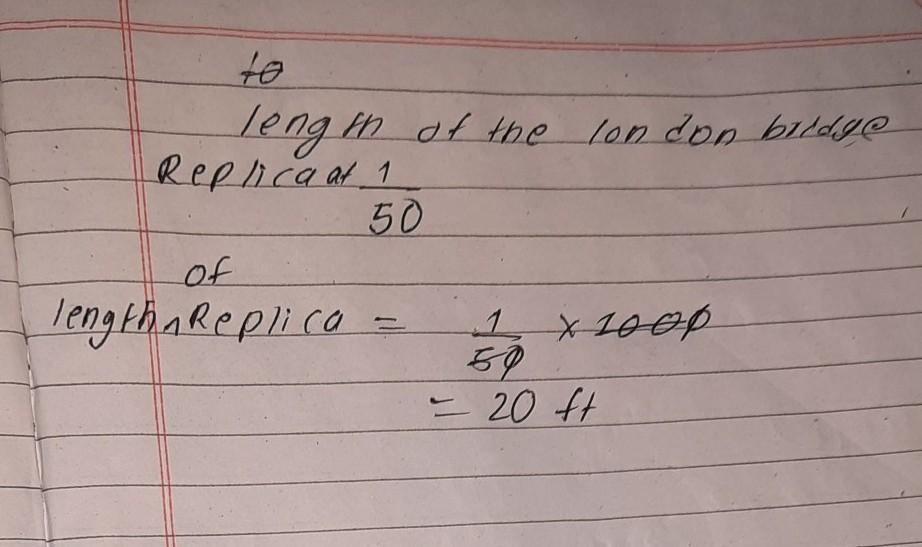 to
length of the london bridge
Replica at 1/50
of
length ^ Replica = 1/50 × 1000
= 20 ft